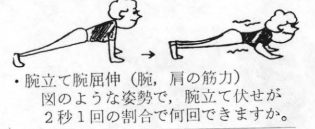 ・腕立て腕屈伸（腕，肩の筋力）
図のような姿勢で，腕立て伏せが
２秒１回の割合で何回できますか。